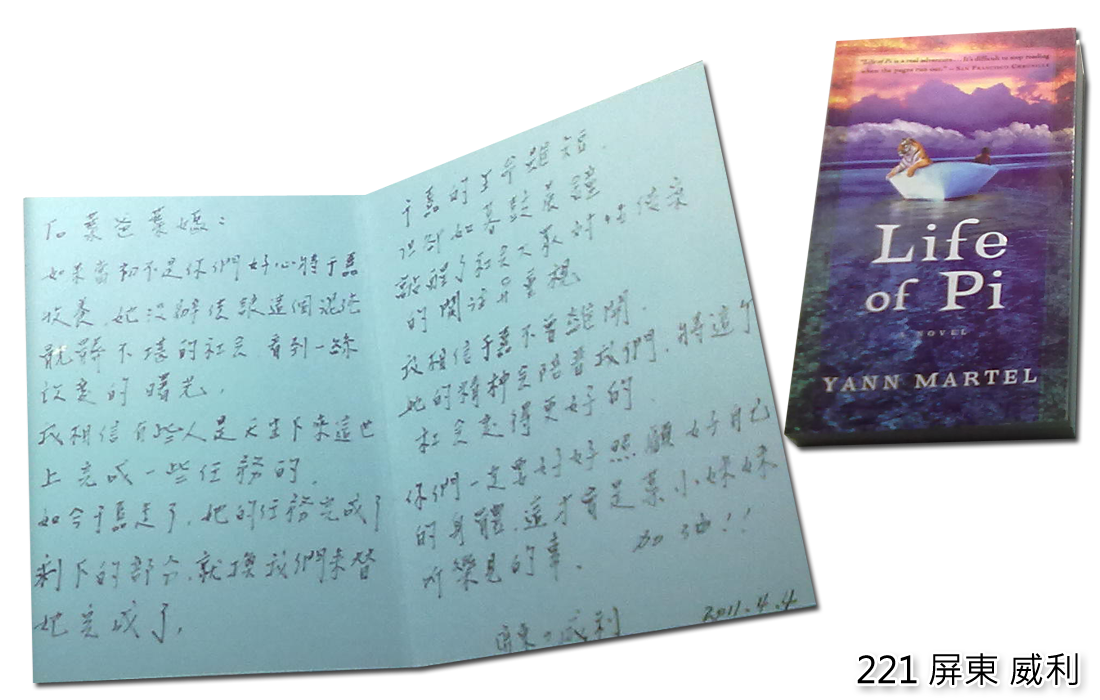 To 葉爸葉媽：
如果當初不是你們好心將于
收養，她沒辦法讓這個混沌
骯髒不堪的社會看到一絲
改變的曙光。
我相信有些人是天生下來這世
上完成一些任務的。
如今于走了，她的任務完成了
剩下的部分，就換我們來替
她完成了。
于的生命雖短，
但卻如暮鼓晨鐘
敲醒了社會大眾對
的關注與重視
我相信于不曾離開。
她的精神會陪著我們，將這個
社會走得更好的。
你們一定要好好照顧好自己
的身體，這才會是葉小妹妹
所樂見的事。
加油！！
屏東。威利
2011.4.4
"Life of Pi is a real adventure... It's difficult to stop reading
when the pages run out." —SAN FRANCISCO CHRONICLE
Life
of Pi
NOVEL
YANN MARTEL
221 屏東 威利